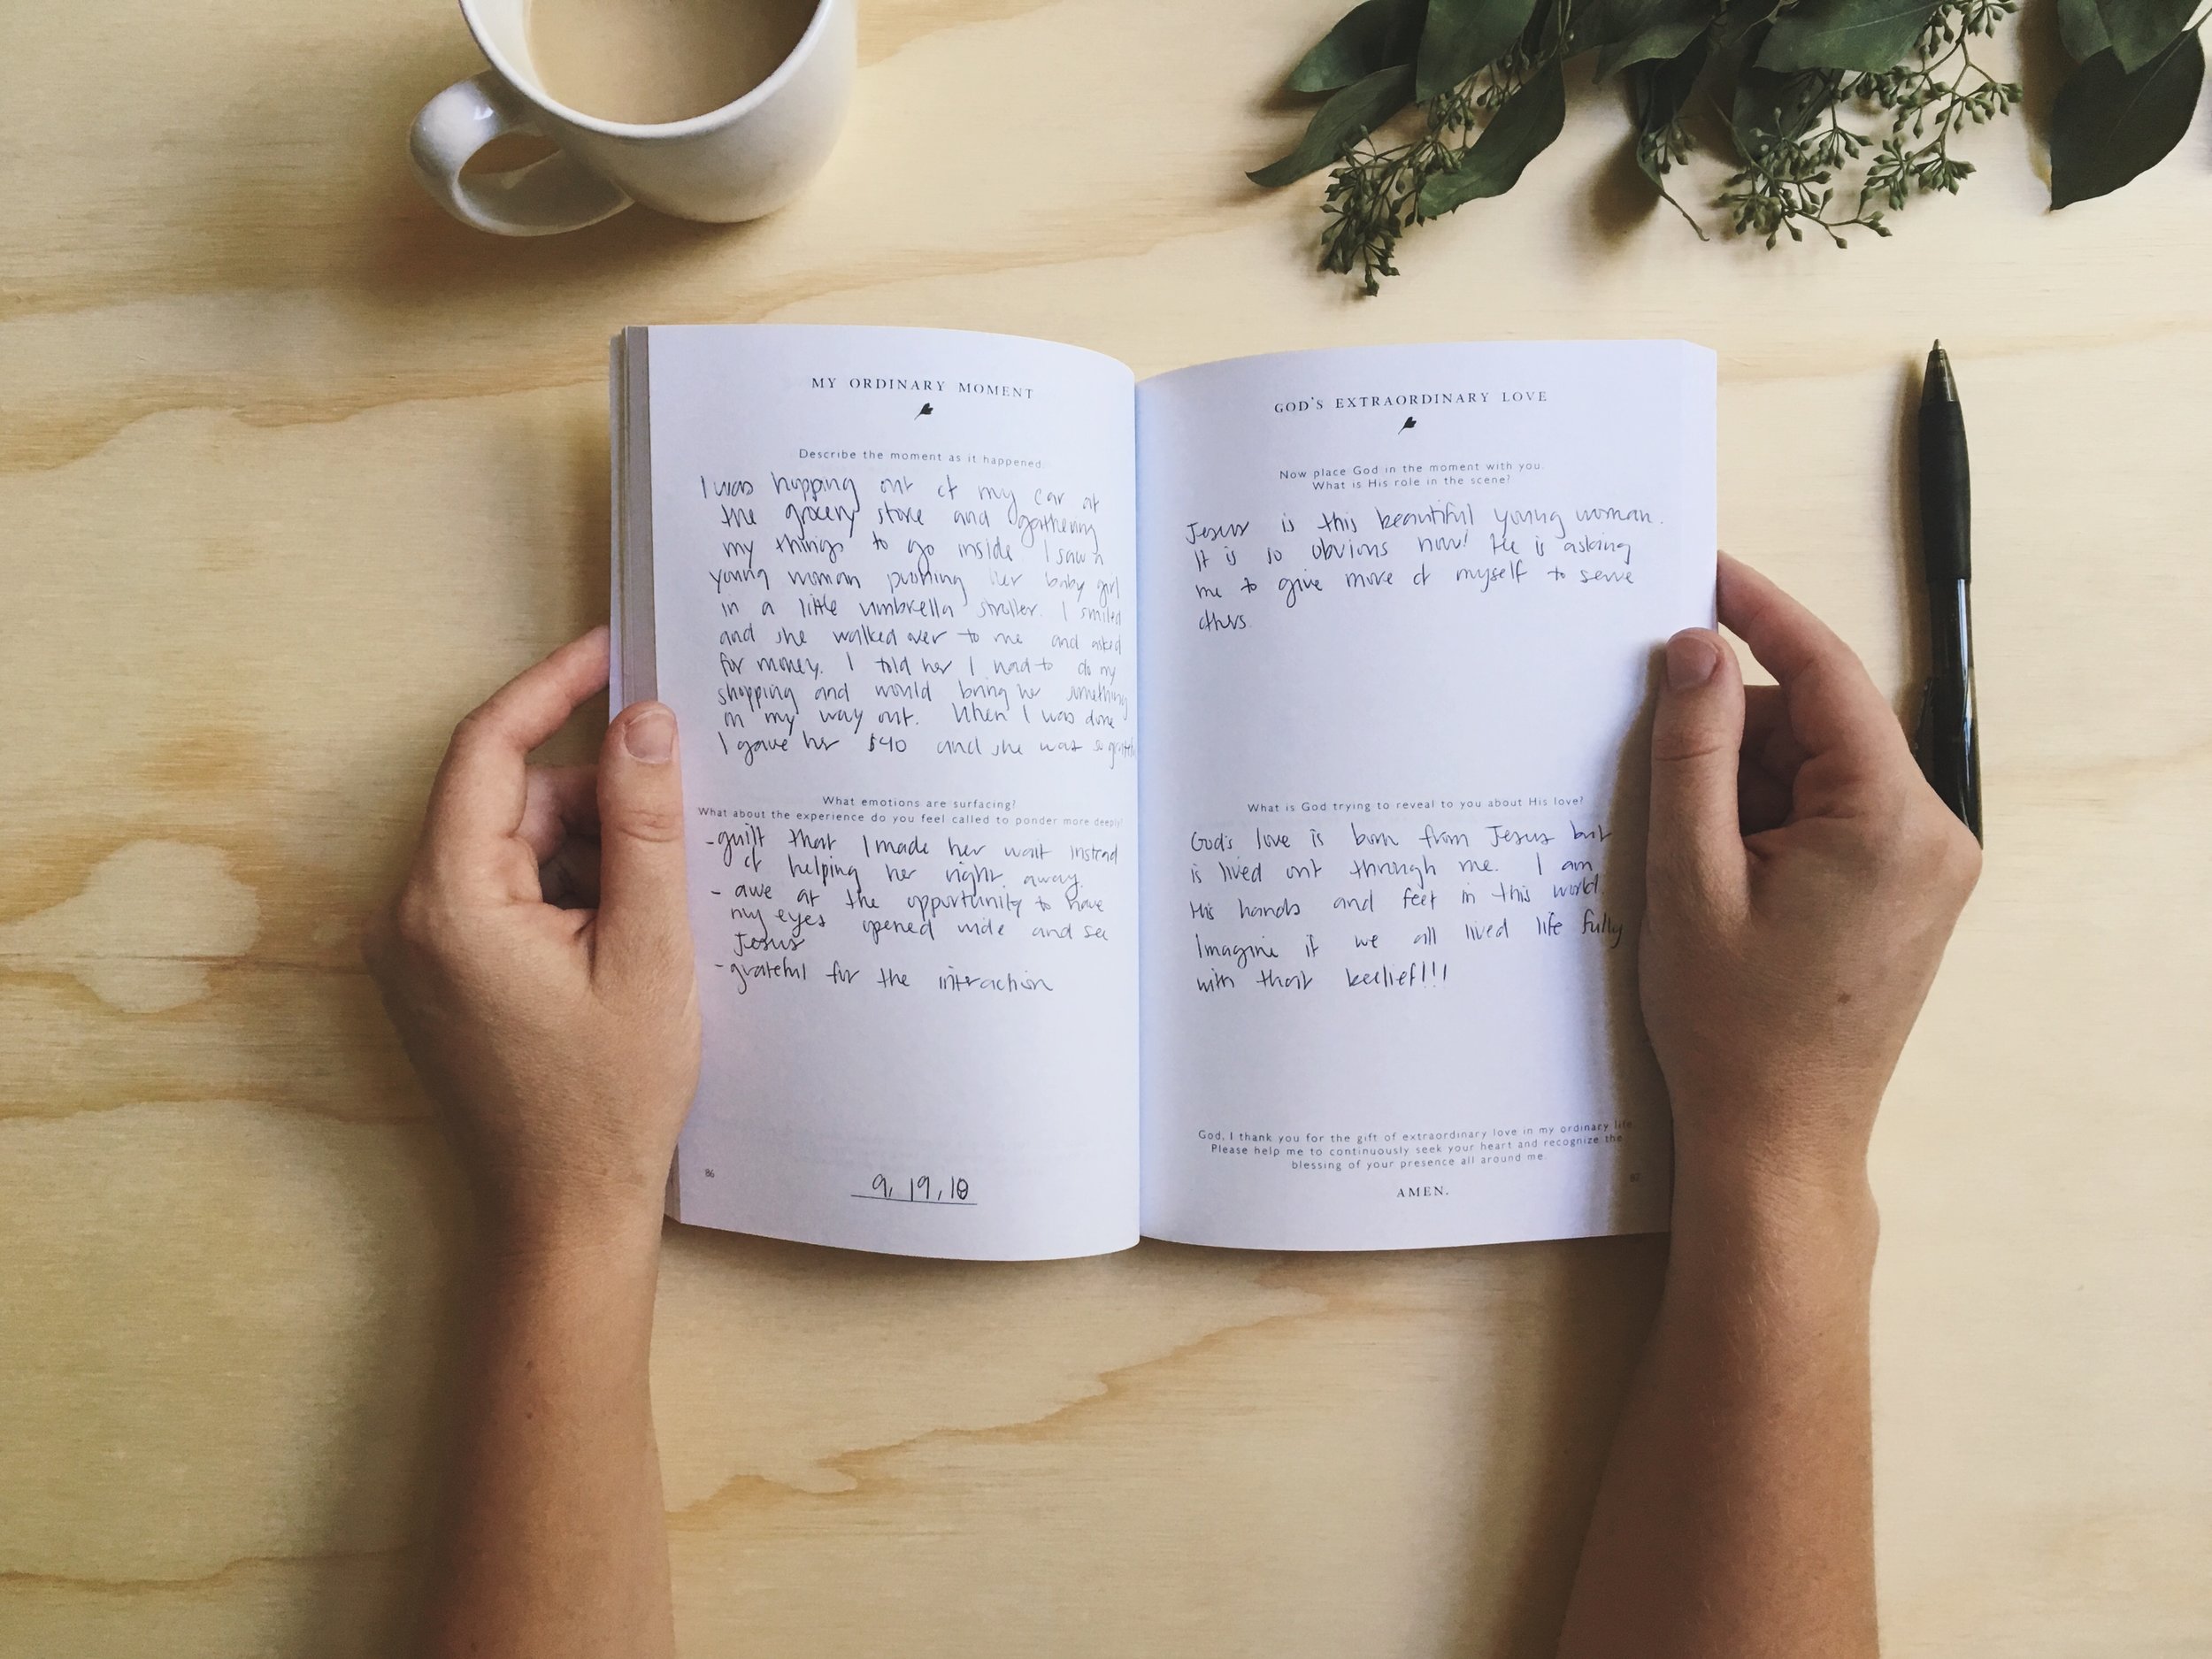 MY ORDINARY MOMENT
Describe the moment as it happened.
I was hopping out of my car at
the grocery store and gathering
my things to go inside I saw a
young woman pushing her baby girl
in a little umbrella stroller. I smiled
and she walked over to me and asked
for money. I told her I had to do my
shopping and would bring her something
on my way out. When I was done
I gave her $40 and she was so grateful
What emotions are surfacing?
What about the experience do you feel called to ponder more deeply?
- guilt that I made her wait instead
of helping her right away.
- awe at the opportunity to have
my eyes opened wide and see
Jesus
- grateful for the interaction
86
9.19.18
GOD'S EXTRAORDINARY LOVE
Now place God in the moment with you.
What is His role in the scene?
Jesus is this beautiful young woman.
It is so obvious now! He is asking
me to give more of myself to serve
others.
What is God trying to reveal to you about His love?
God's love is born from Jesus but
is lived out through me. I am
His hands and feet in this world.
Imagine if we all lived life fully
with that beelief!!!
God, I thank you for the gift of extraordinary love in my ordinary life.
Please help me to continuously seek your heart and recognize the
blessing of your presence all around me.
AMEN.
87